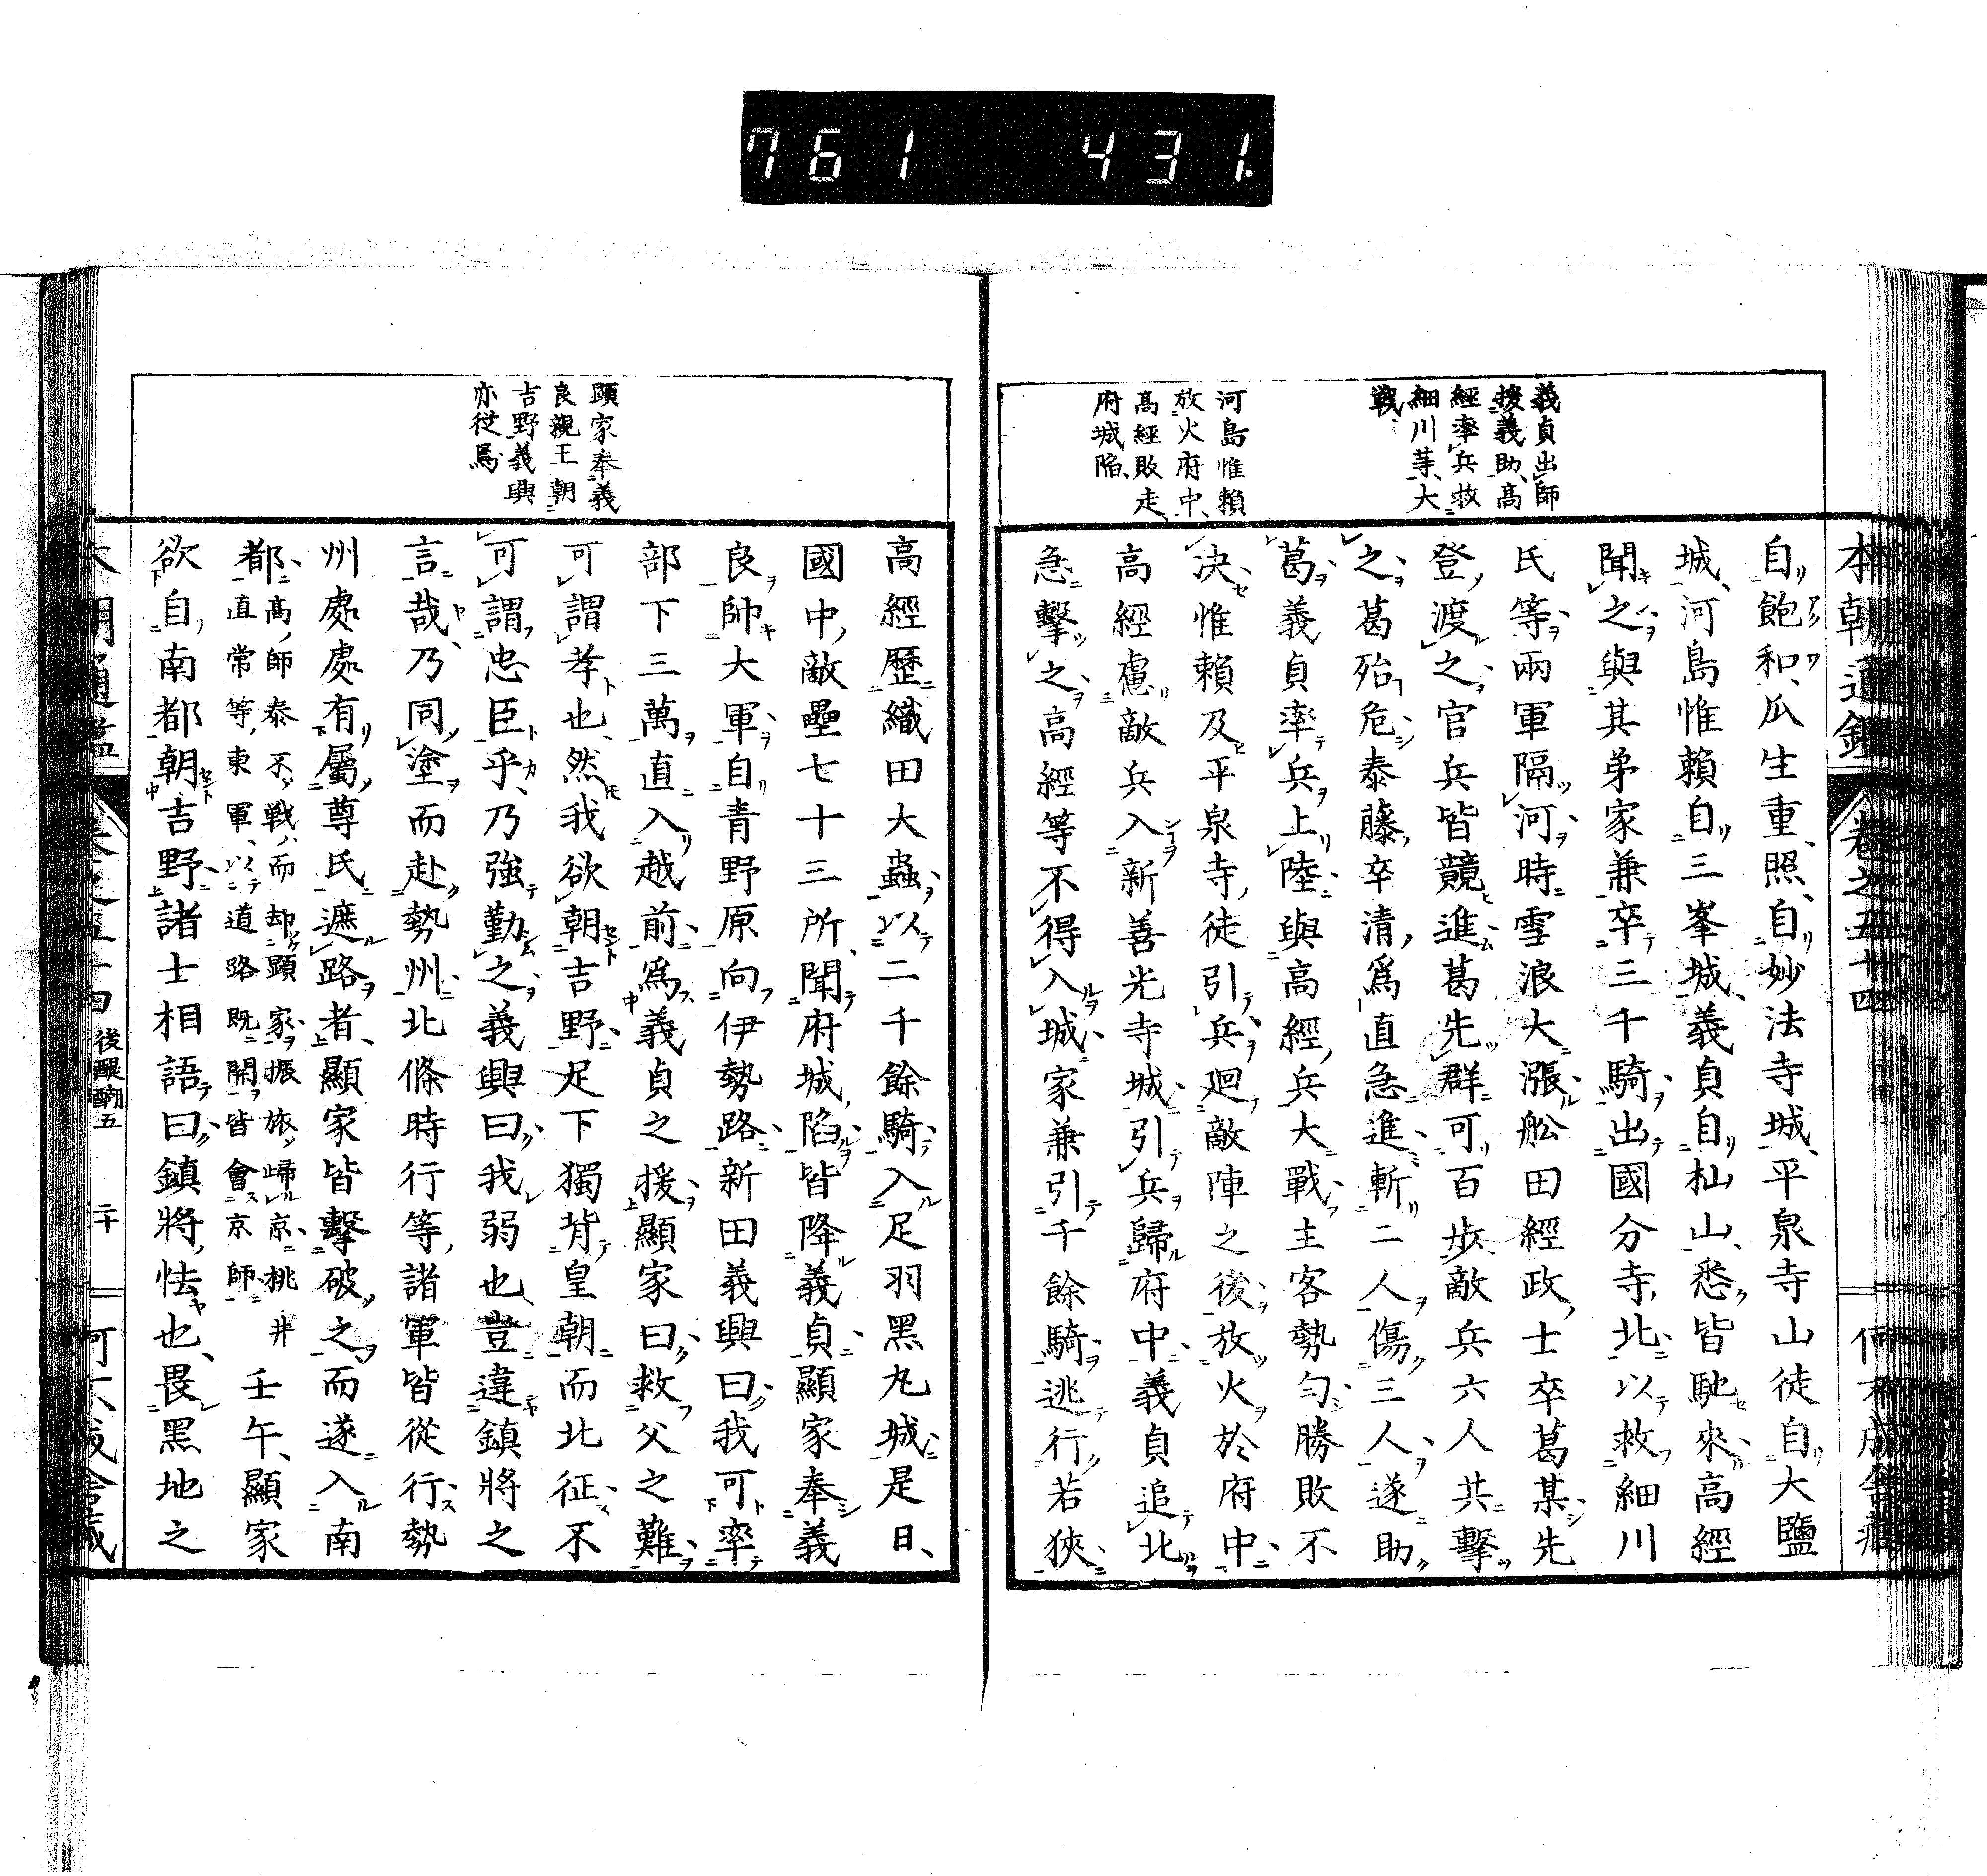 761 431
本朝通鑑 卷之五十四
義貞出師
援義助高
經率兵救
細川等大
戰
河島惟賴
放火府中
高經敗走
府城陷
自飽和瓜生重照自妙法寺城平泉寺山徒自大鹽
城河島惟賴自三峯城義貞自杣山悉皆馳來高經
聞之與其弟家兼卒三千騎出國分寺北以救細川
氏等兩軍隔河時雪浪大漲舩田經政士卒葛某先
登渡之官兵皆競進葛先群可百步敵兵六人共擊
之葛殆危泰藤卒清爲直急進斬二人傷三人遂助
葛義貞率兵上陸與高經兵大戰主客勢勻勝敗不
決惟賴及平泉寺徒引兵廻敵陣之後放火於府中
高經慮敵兵入新善光寺城引兵歸府中義貞追北
急擊之高經等不得入城家兼引千餘騎逃行若狹
顯家奉義
良親王朝
吉野義興
亦從焉
高經歷織田大蟲以二千餘騎入足羽黑丸城是日
國中敵壘七十三所聞府城陷皆降義貞顯家奉義
良帥大軍自青野原向伊勢路新田義興曰我可率
部下三萬直入越前爲義貞之援顯家曰救父之難
可謂孝也然我欲朝吉野足下獨背皇朝而北征不
可謂忠臣乎乃強勤之義興曰我弱也豈違鎮將之
言哉乃同塗而赴勢州北條時行等諸軍皆從行勢
州處處有屬尊氏遮路者顯家皆擊破之而遂入南
都高師泰不戰而却顯家振旅歸京桃井
直常等東軍以道路既開皆會京師
壬午顯家
欲自南都朝吉野諸士相語曰鎮將怯也畏黑地之
後醍醐五 二十